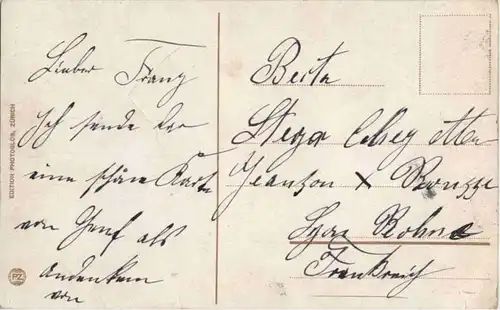 Lieber Franz
Ich sende dir
eine schöne Karte
von Genf als
Andenken
von
EDITION PHOTOGLOB, ZÜRICH
PZ
Berta
chez
x
Lyon Rohne
Frankreich